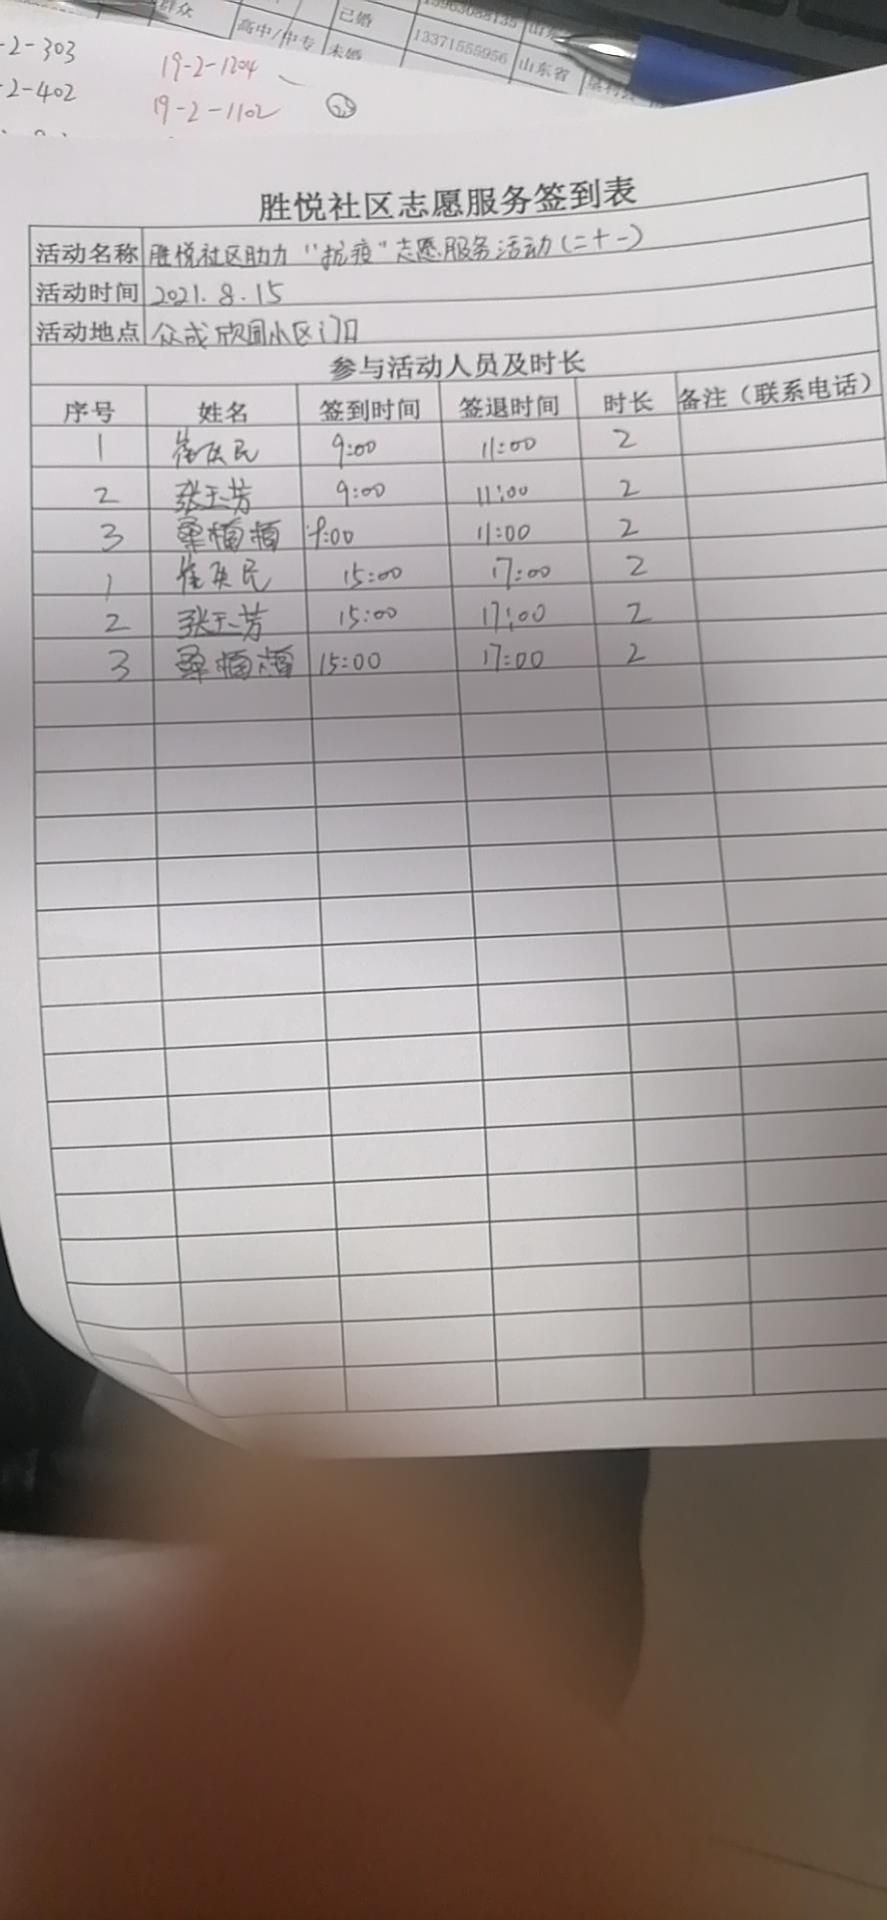 群众
已婚
高中/中专
未婚
13371555956
山东省
-2-303
19-2-1204
-2-402
19-2-1102
胜悦社区志愿服务签到表
活动名称 胜悦社区助力“抗疫”志愿服务活动(二十一)
活动时间 2021.8.15
活动地点 众成欣园小区门口
参与活动人员及时长
序号 姓名 签到时间 签退时间 时长 备注（联系电话）
1 民 9:00 11:00 2
2 张玉芳 9:00 11:00 2
3 9:00 11:00 2
1 民 15:00 17:00 2
2 张玉芳 15:00 17:00 2
3 15:00 17:00 2